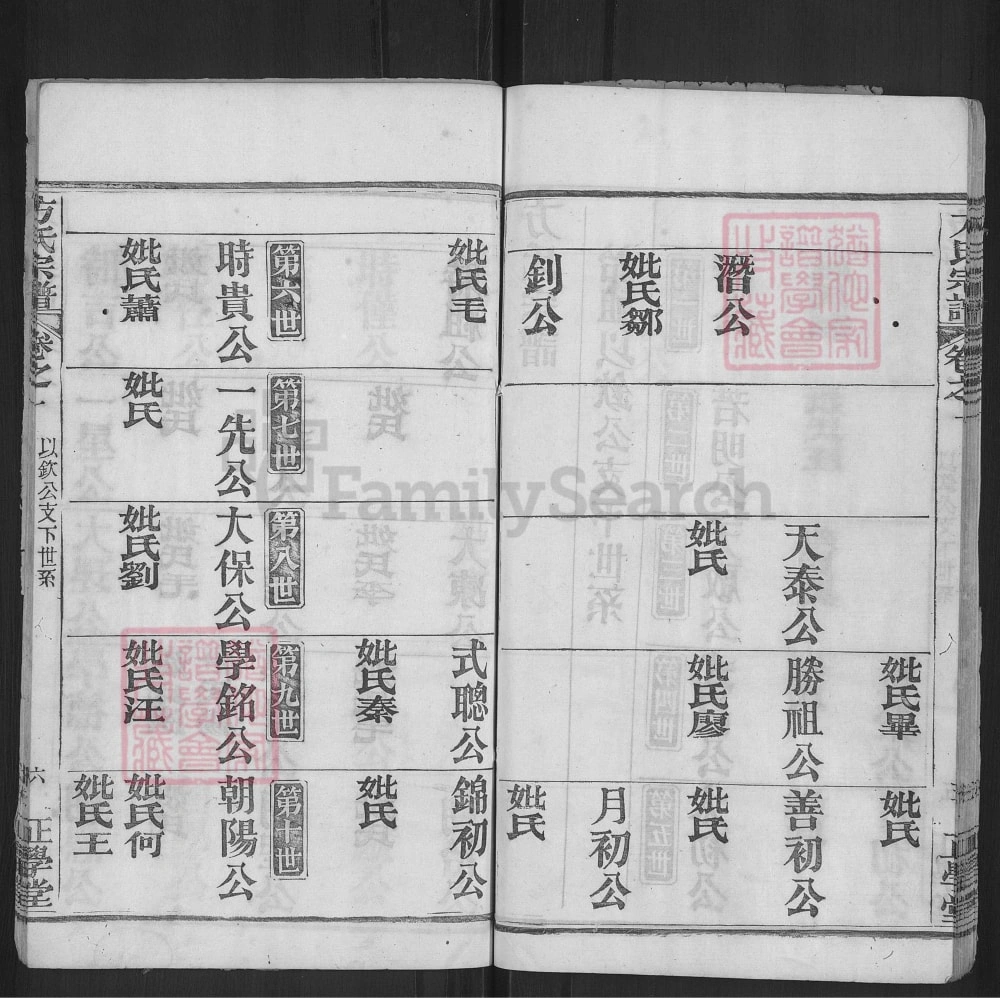 方氏宗譜
卷之一
正學堂
潛公
妣氏鄒
釗公
天泰公
妣氏
妣氏畢
勝祖公
妣氏廖
妣氏
善初公
妣氏
月初公
妣氏
妣氏毛
第六世
時貴公
妣氏蕭
第七世
一先公
妣氏
第八世
大保公
妣氏劉
式聰公
妣氏秦
第九世
學銘公
妣氏汪
錦初公
妣氏
第十世
朝陽公
妣氏何
妣氏王
方氏宗譜
卷之一
以欽公支下世系
六
正學堂
FamilySearch